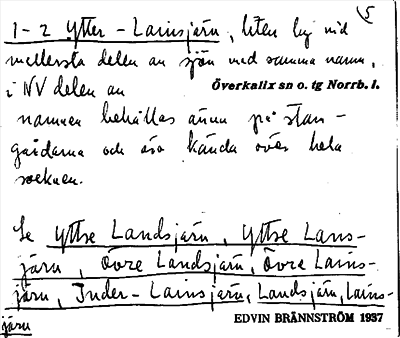 5
1-2 Ytter-Lainsjärn, liten by vid
mellersta delen av sjön med samma namn,
i NV delen av
Överkalix sn o. tg Norrb. l.
namnen behållas ännu på stan-
gårdarna och äro kända över hela
socknen.
Se Yttre Landsjärn, Yttre Lans-
järn, Övre Landsjärn, Övre Lains-
järn, Inder-Lainsjärn, Landsjärn, Lains-
järn
EDVIN BRÄNNSTRÖM 1937